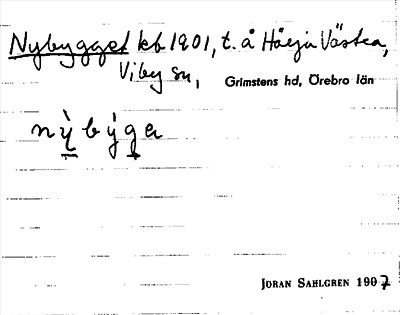 Nybygget kb 1901, t. å Härja Västra,
Viby sn, Grimstens hd, Örebro län
nỳbýga
JORAN SAHLGREN 1907